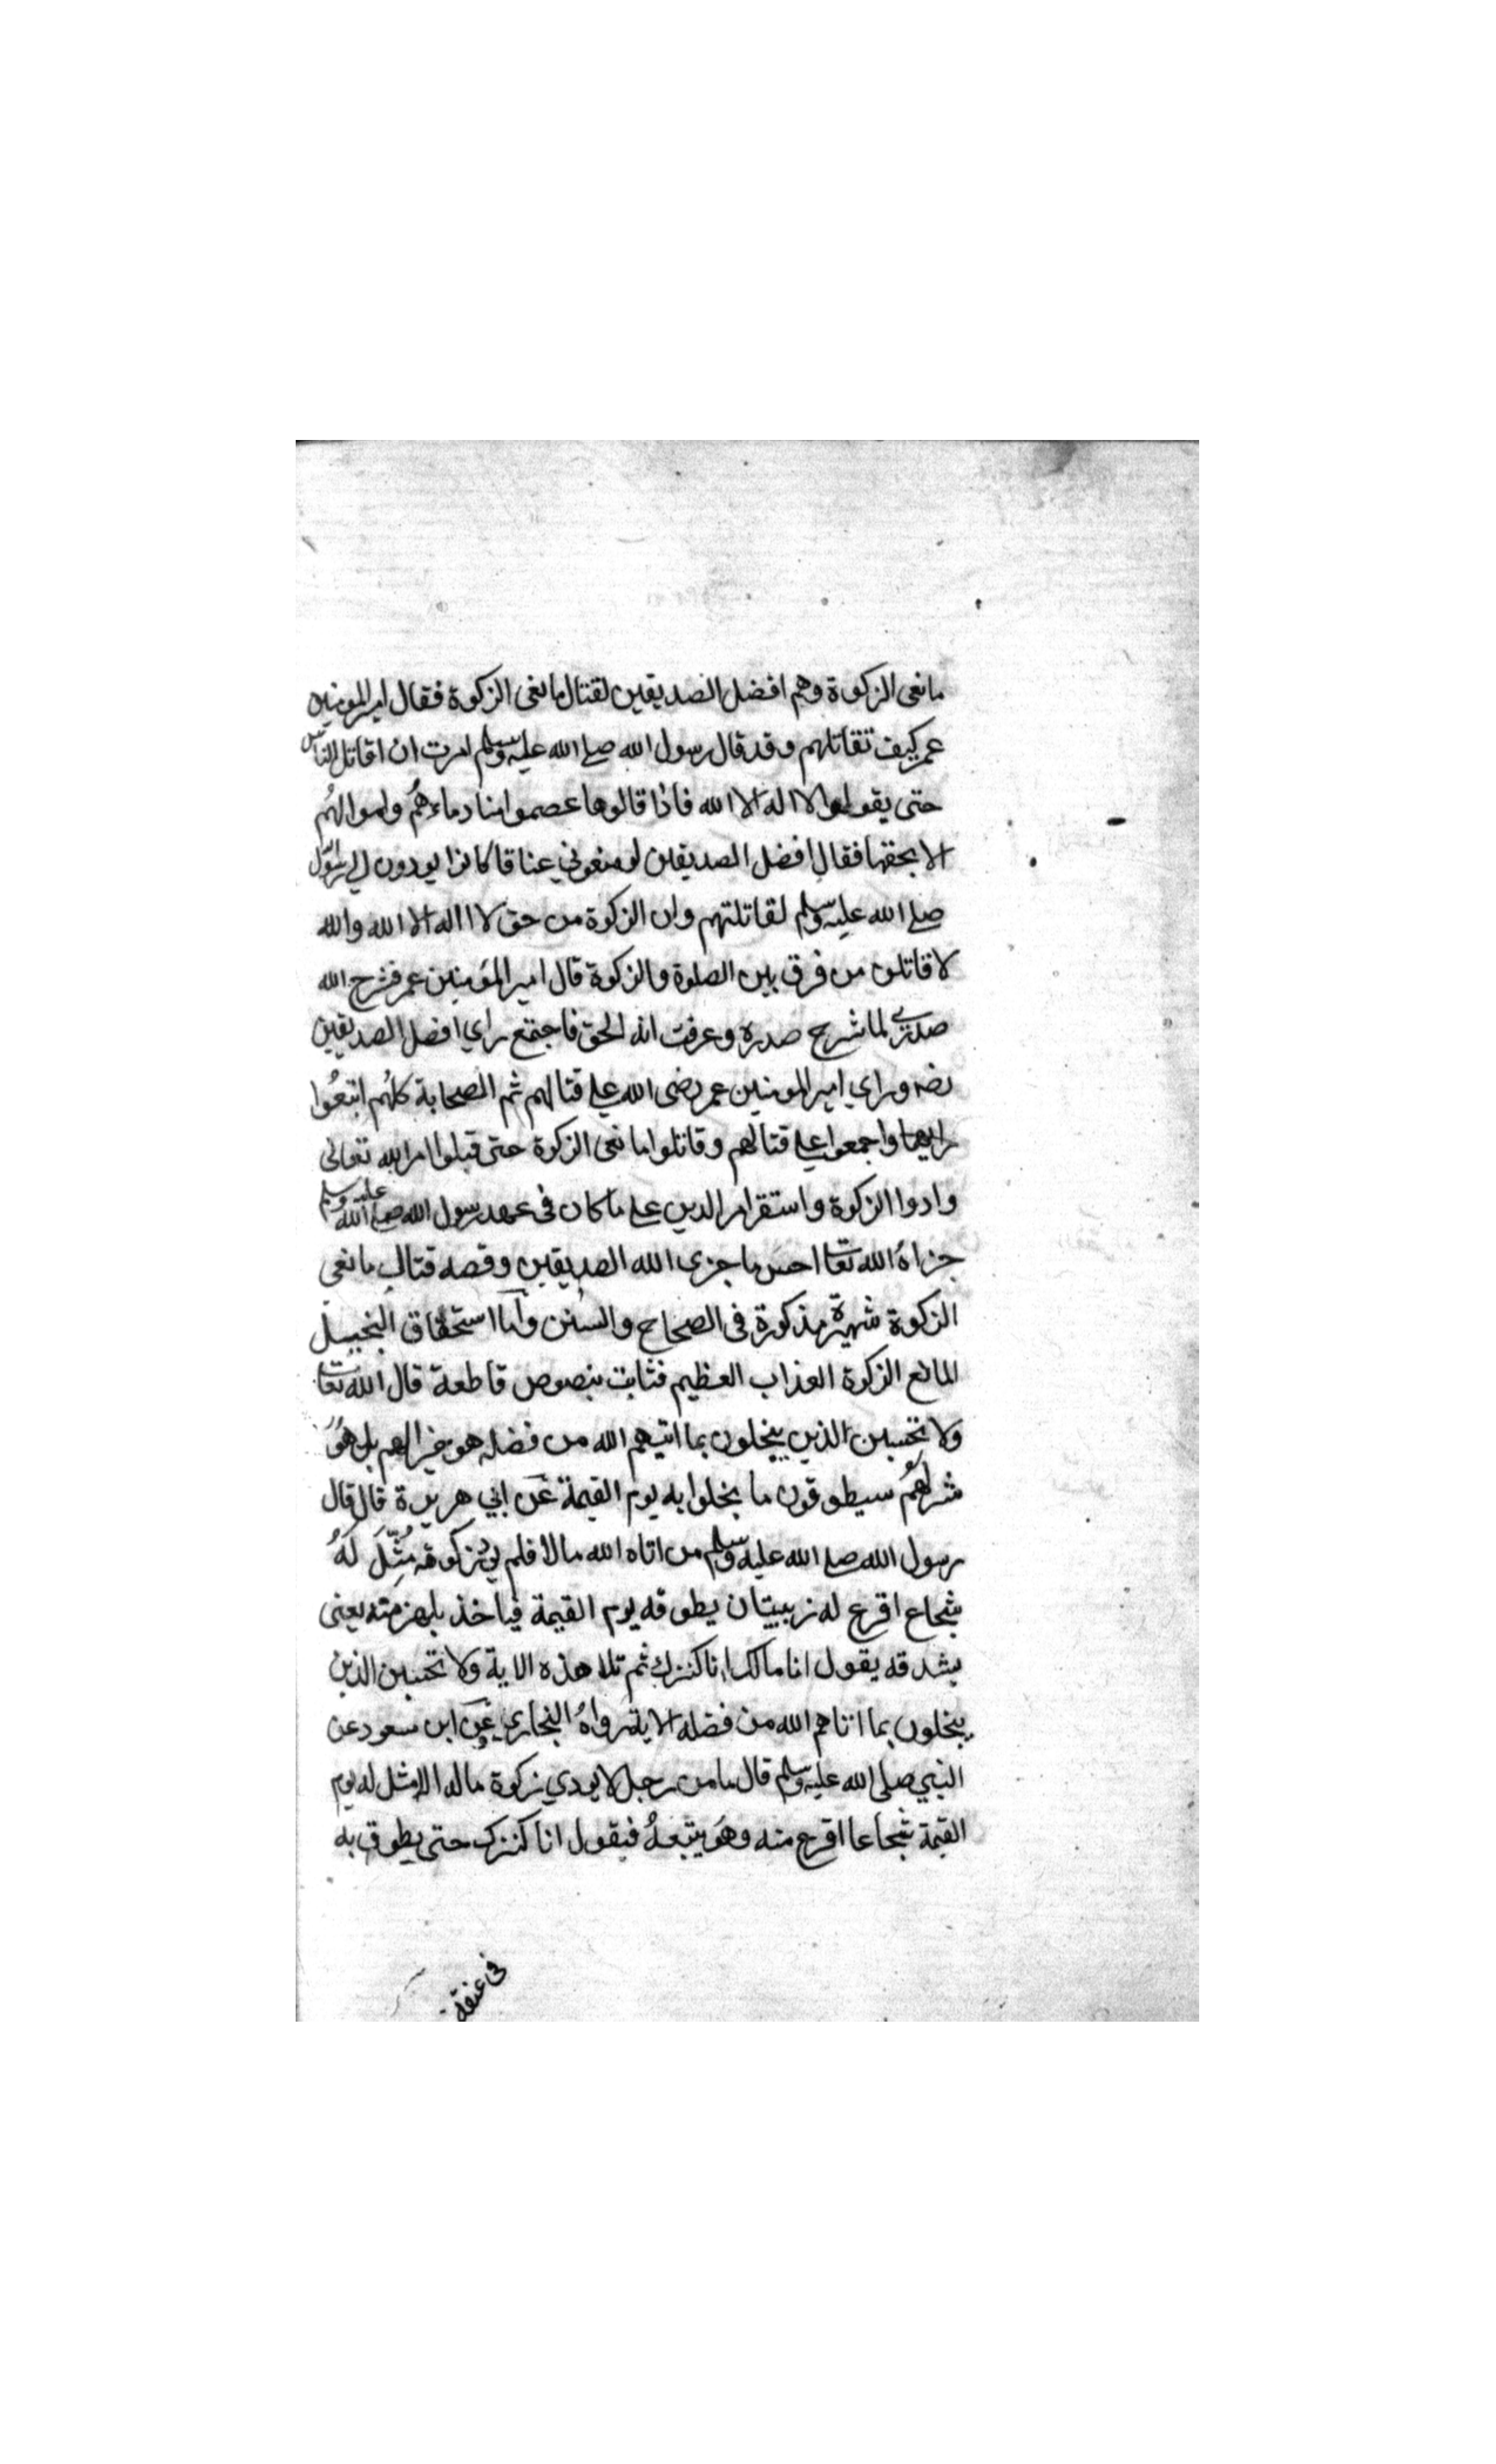 مانعى الزكوة وهم افضل الصديقين لقتال مانعى الزكوة فقال امير المومنين
عمر كيف تقاتلهم وقد قال رسول الله صلے الله عليه وسلم امرت ان اقاتل الناس
حتى يقولوا لا اله الا الله فاذا قالوها عصموا منا دماءهم واموالهم
الا بحقها فقال افضل الصديقين لو منعوني عناقا كانوا يودون الى رسول
صلے الله عليه وسلم لقاتلتهم وان الزكوة من حق لا اله الا الله والله
لا قاتلن من فرق بين الصلوة والزكوة قال امير المؤمنين عمر فشرح الله
صدرى لما شرح صدره وعرفت انه الحق فاجتمع راي افضل الصديقين
رضه وراي امير المومنين عمر رضى الله علے قتالهم ثم الصحابة كلهم اتبعوا
رايهما واجمعوا علے قتالهم وقاتلوا مانعى الزكوة حتى قبلوا امر الله تعالى
وادوا الزكوة واستقر امر الدين علے ما كان فى عهد رسول الله صلے الله عليه وسلم
جزاه الله تعا احسن ما جزى الله الصديقين وقصه قتال مانعى
الزكوة شهيرة مذكورة فى الصحاح والسنن واما استحقاق البخيل
المانع الزكوة العذاب العظيم فثابت بنصوص قاطعة قال الله تعا
ولا تحسبن الذين يبخلون بما اتيهم الله من فضله هو خيرا لهم بل هو
شر لهم سيطوقون ما بخلوا به يوم القيمة عن ابي هريرة قال قال
رسول الله صلے الله عليه وسلم من اتاه الله مالا فلم يؤد زكوته مثل له
شجاع اقرع له زبيبتان يطوقه يوم القيمة فياخذ بلهزمته يعنى
بشدقه يقول انا مالك انا كنزك ثم تلا هذه الاية ولا تحسبن الذين
يبخلون بما اتاهم الله من فضله الاية رواه البخاري وعن ابن مسعود عن
النبي صلى الله عليه وسلم قال ما من رجل لا يودي زكوة ماله الا مثل له يوم
القيمة شجاعا اقرع منه وهو يتبعه فيقول انا كنزك حتى يطوق به
فى عنقه